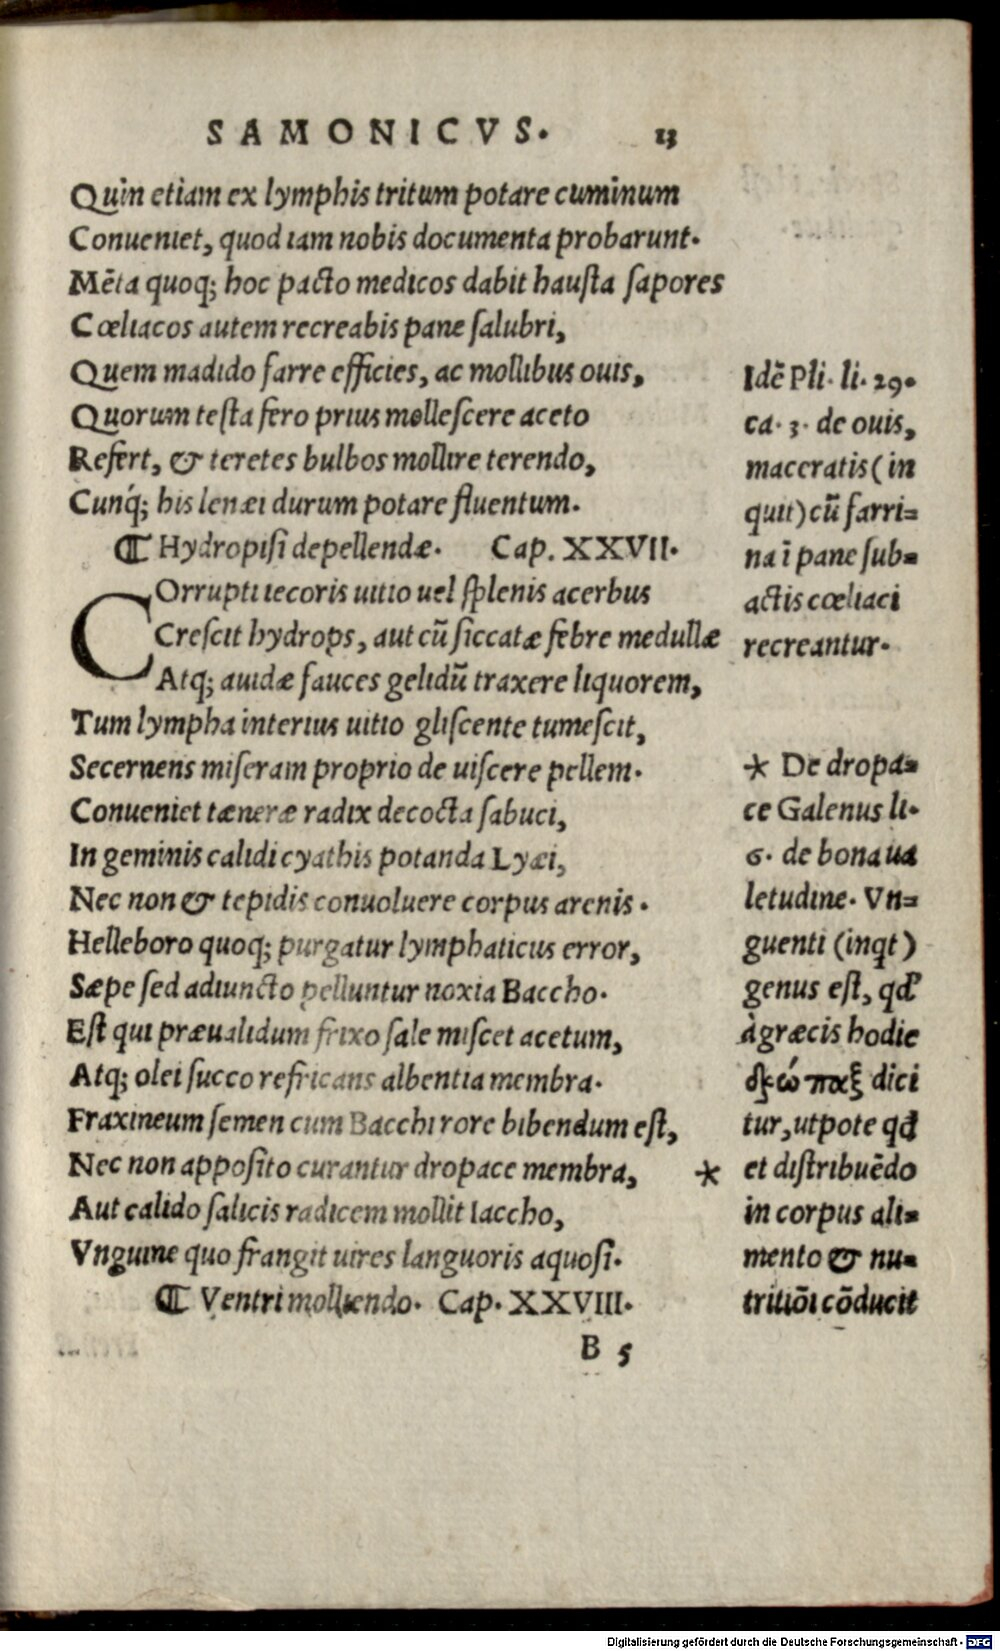 SAMONICVS. 13
Quin etiam ex lymphis tritum potare cuminum
Conueniet, quod iam nobis documenta probarunt.
Mēta quoq; hoc pacto medicos dabit hausta sapores
Cœliacos autem recreabis pane salubri,
Quem madido farre efficies, ac mollibus ouis,
Quorum testa fero prius mollescere aceto
Refert, & teretes bulbos mollire terendo,
Cunq́; his lenæi durum potare fluentum.
¶ Hydropisi depellendæ. Cap. XXVII.
COrrupti iecoris uitio uel splenis acerbus
Crescit hydrops, aut cū siccatæ febre medullæ
Atq; auidæ fauces gelidū traxere liquorem,
Tum lympha interius uitio gliscente tumescit,
Secernens miseram proprio de uiscere pellem.
Conueniet tæneræ radix decocta sabuci,
In geminis calidi cyathis potanda Lyæi,
Nec non & tepidis conuoluere corpus arenis.
Helleboro quoq; purgatur lymphaticus error,
Sæpe sed adiuncto pelluntur noxia Baccho.
Est qui præualidum frixo sale miscet acetum,
Atq; olei succo refricans albentia membra.
Fraxineum semen cum Bacchi rore bibendum est,
Nec non apposito curantur dropace membra, *
Aut calido salicis radicem mollit Iaccho,
Vnguine quo frangit uires languoris aquosi.
¶ Ventri molliendo. Cap. XXVIII.
B 5
Idē Pli. li. 29.
ca. 3. de ouis,
maceratis (in
quit) cū farri=
na ī pane sub=
actis cœliaci
recreantur.
* De dropa=
ce Galenus li.
6. de bona ua
letudine. Vn=
guenti (inqt)
genus est, qd
à græcis hodie
δρώπαξ dici
tur, utpote qd
et distribuēdo
in corpus ali=
mento & nu=
tritiōi cōducit
Digitalisierung gefördert durch die Deutsche Forschungsgemeinschaft - DFG